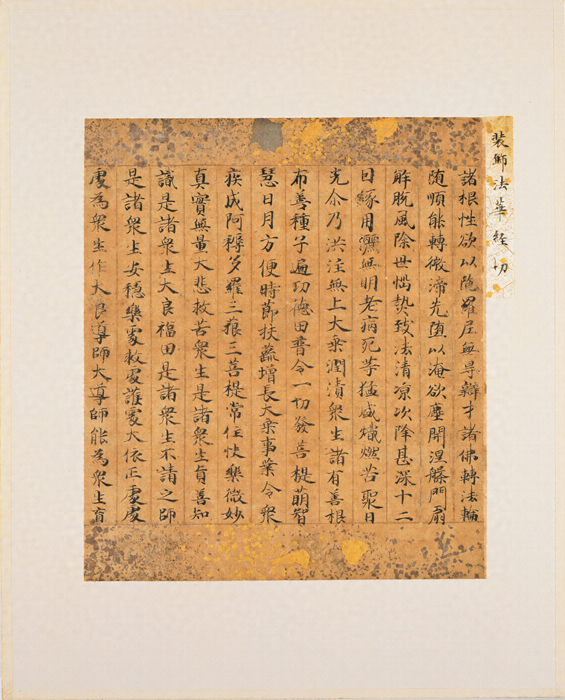 装飾法華経切
諸根性欲以陁羅尼無㝵辯才諸佛轉法輪
随順能轉微渧先堕以淹欲塵開涅槃門扇
解脱風除世惱熱致法清凉次降甚深十二
因縁用灑無明老病死等猛盛熾燃苦聚日
光尒乃洪注無上大乗潤漬衆生諸有善根
布善種子遍功徳田普令一切發菩提萌智
慧日月方便時節扶蔬增長大乗事業令衆
疾成阿耨多羅三藐三菩提常住快樂微妙
真實無量大悲救苦衆生是諸衆生真善知
識是諸衆生大良福田是諸衆生不請之師
是諸衆生安穏樂處救處護處大依止處處
處為衆生作大良導師大導師能為衆生盲